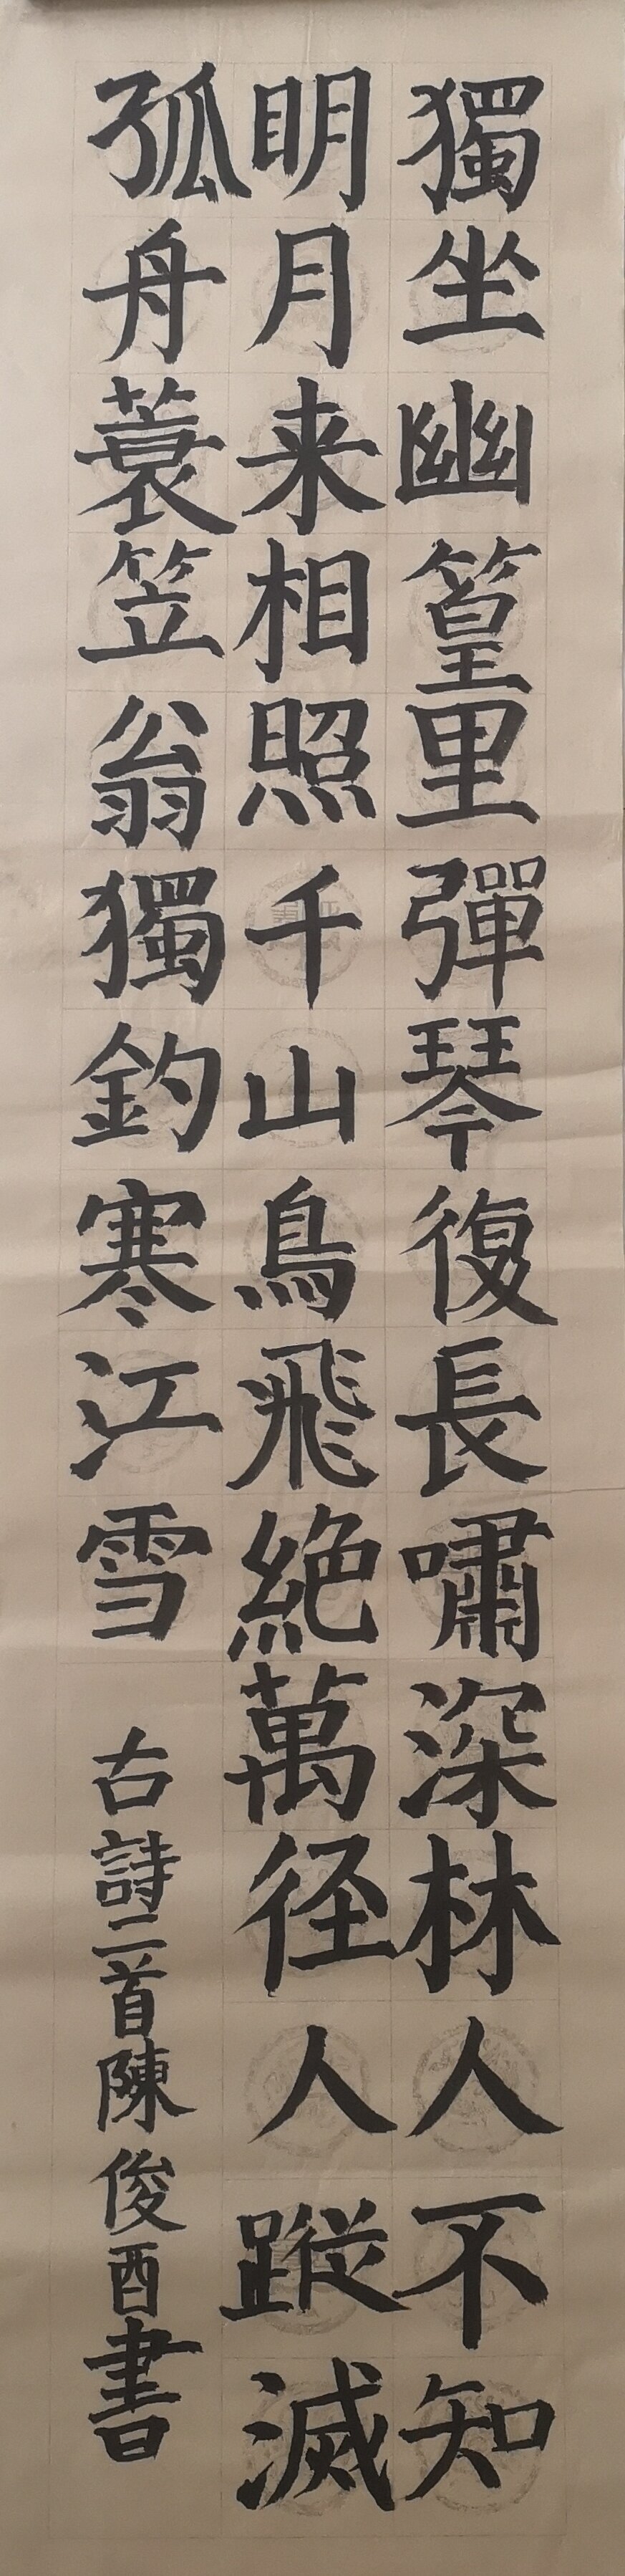 獨坐幽篁里彈琴復長嘯深林人不知
明月来相照千山鳥飛絶萬径人蹤滅
孤舟蓑笠翁獨釣寒江雪
古詩二首陳俊酉書